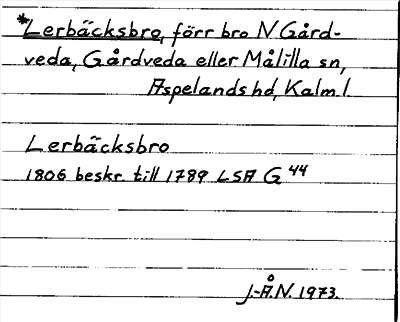 *Lerbäcksbro, förr bro N Gård-
veda, Gårdveda eller Målilla sn,
Aspelands hd, Kalm l.
Lerbäcksbro
1806 beskr. till 1789 LSA G 44
J.-Å.N. 1973.